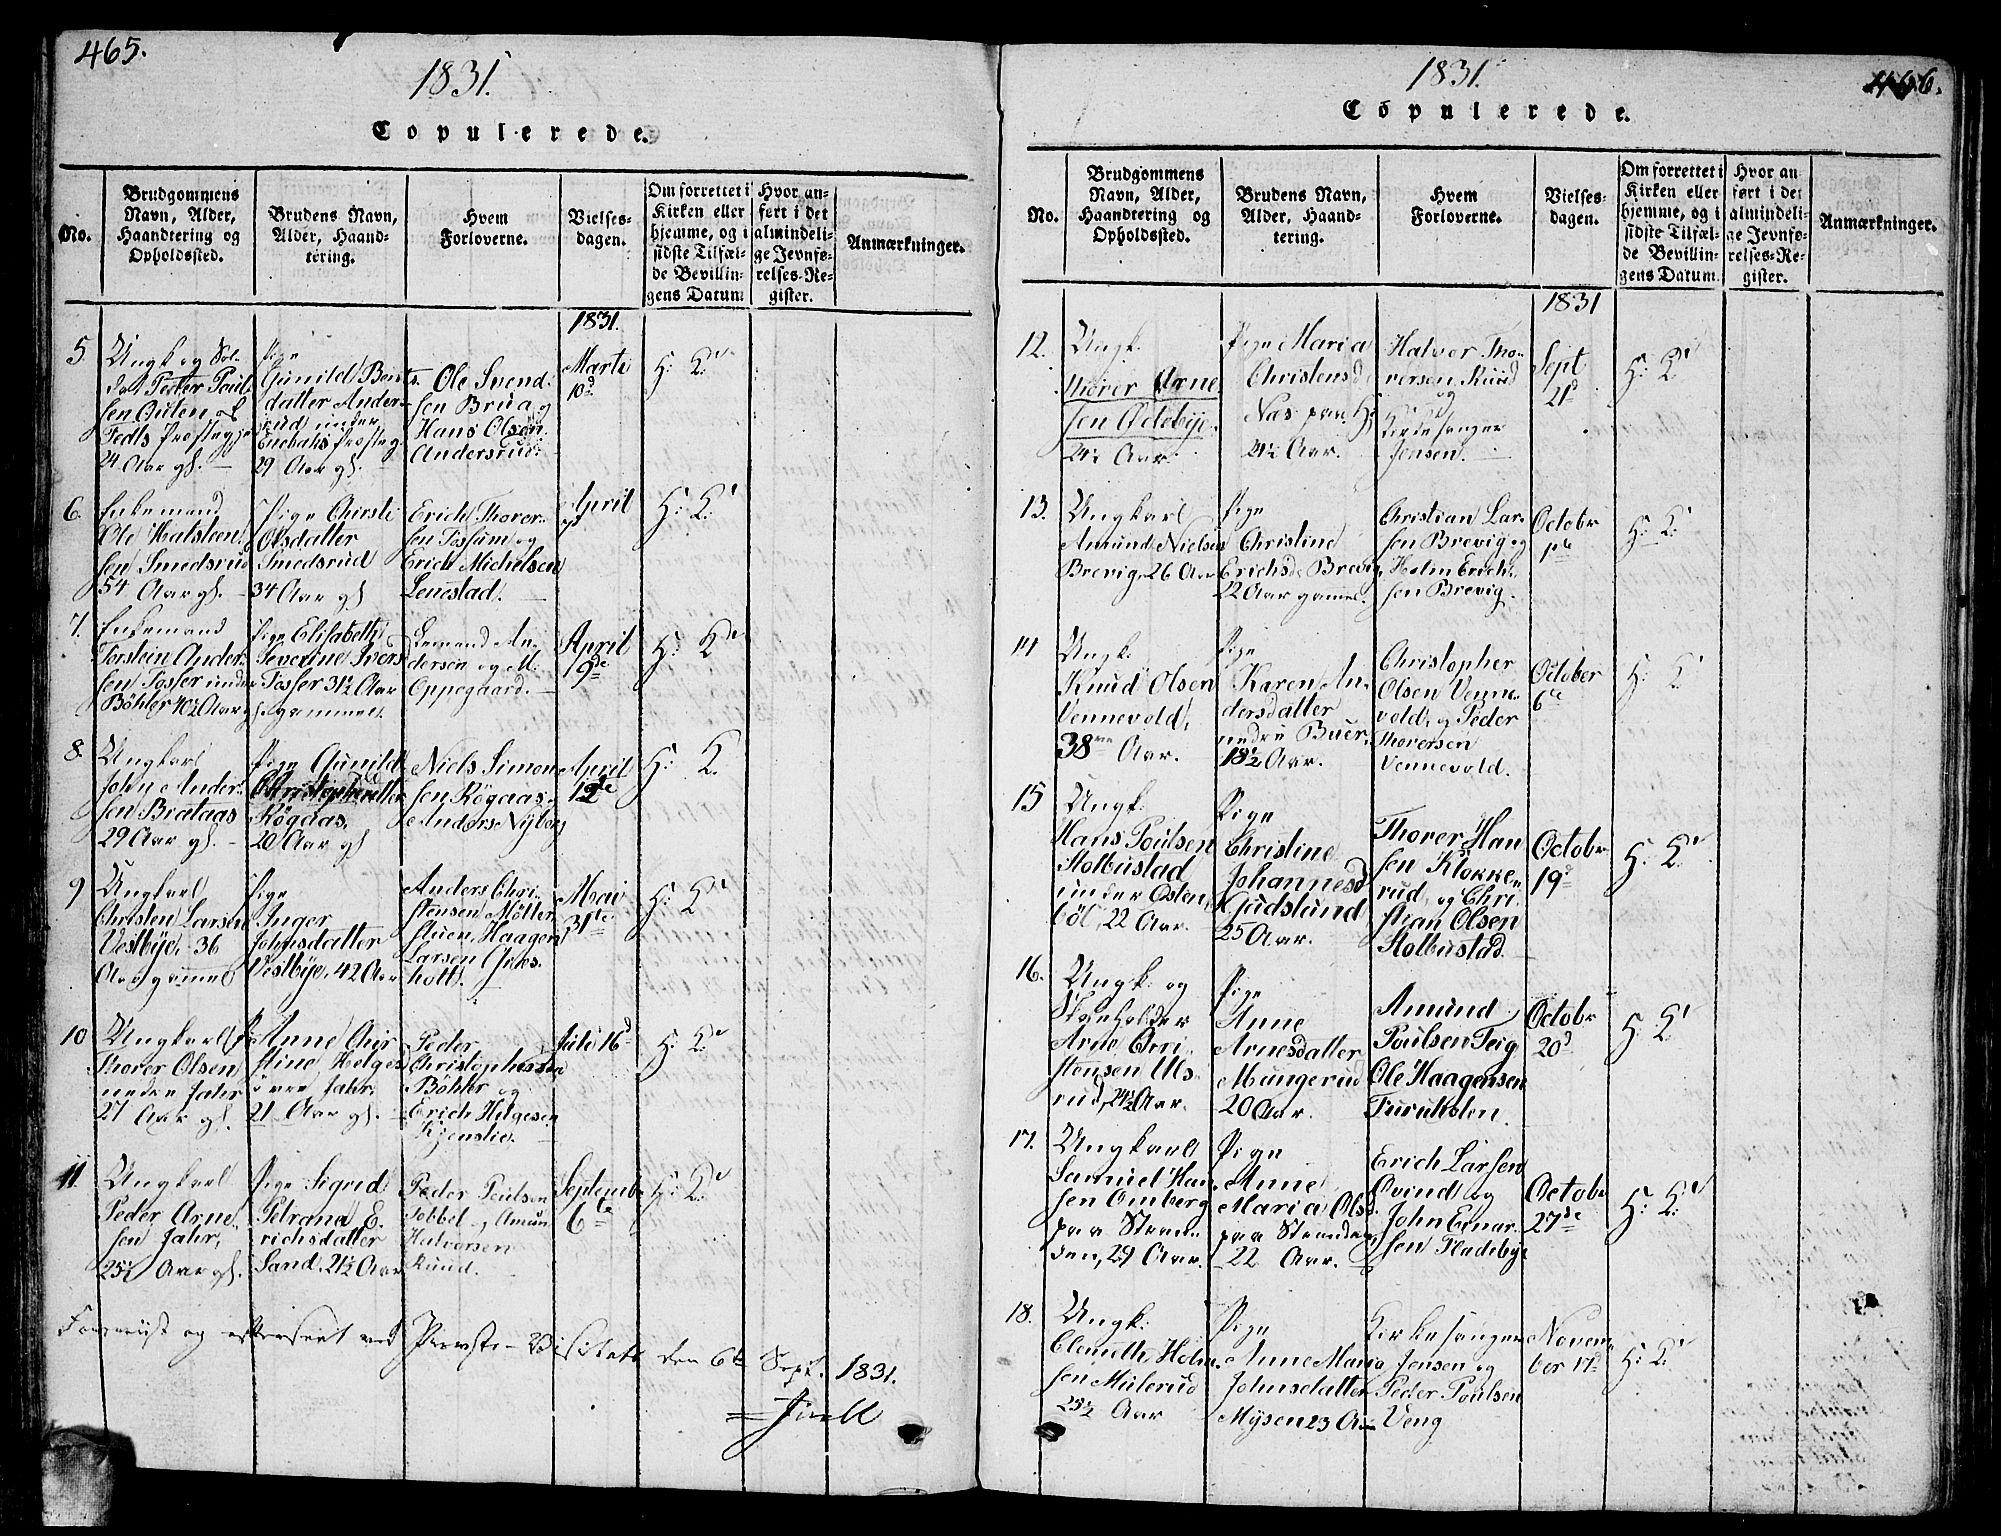 465.
1831.
Copulerede.
No.
Brudgommens
Navn, Alder,
Haandtering og
Opholdssted.
Brudens Navn,
Alder, Haand-
tering.
Hvem
Forloverne.
Vielses-
dagen.
Om forrettet i
Kirken eller
hjemme, og i
sidste Tilfæl-
de Bevillin-
gens Datum.
Hvor an-
ført i det
almindeli-
ge Jevnfø-
relses-Re-
gister.
Anmærkninger.
1831.
5
Ungk og Sol-
dat Peder Poul-
sen
24 Aar gl.
Pige
Gunild Bents-
datter Anders-
rud under
Enebaks Præsteg
29 Aar gl.
Ole Svend-
sen Brua og
Hans Olsen
Andersrud.
Marti
10d
H: K:
6.
Enkemand
Ole Halsteen-
sen Smedsrud
54 Aar gl.
Pige Chirsti
Olsdatter
Smedsrud
34 Aar gl
Erich Thorer-
sen Fossum og
Erich Michelsen
Lenestad.
April
H: K:
7.
Enkemand
Torstein Ander-
sen Fosser under
Böhler 40½ Aar gl.
Pige Elisabeth
Severine Ivers
Fosser 31½ Aar
gammel.
Gemand An-
dersen og M.
Oppegaard.
April
9de
H: K:
8.
Ungkarl
John Ander-
sen Brataas
29 Aar gl.
Pige Gunild
Christopherdatter
Rögaas,
20 Aar gl
Niels Simon-
sen Rögaas,
Anders Nyborg
April
12te
H: K:
9
Ungkarl
Christen Larsen
Vestbye, 36
Aar gammel
Pige
Inger
Johnsdatter
Vestbye, 42 Aar
Anders Chri-
stensen Möller-
stuen, Haagen
Larsen Gjers-
holt.
Mai
31te
H: K:
10
Ungkarl
Thorer Olsen
under Jahr
27 Aar gl.
Anne Chir
stine Helges
övre Jahr.
21 Aar gl.
Peder
Christophersen
Böhler og
Erich Helgesen
Kjenslie.
Juli 16d
H: K:
11.
Ungkarl
Peder Arne-
sen Jahr,
25½ Aar gl.
Pige Sigrid
Petrana E-
richsdatter
Sand. 21½ Aar
Peder Poulsen
Tobbel og Amun
Halvorsen
Ruud.
Septemb
6te
H: K:
ved Provste-Visitats den 6te Sept. 1831.
Juell
1831.
466.
Copulerede.
No.
Brudgommens
Navn, Alder,
Haandtering og
Opholdssted.
Brudens Navn,
Alder, Haand-
tering.
Hvem
Forloverne.
Vielses-
dagen.
Om forrettet i
Kirken eller
hjemme, og i
sidste Tilfæl-
de Bevillin-
gens Datum.
Hvor an-
ført i det
almindeli-
ge Jevnfø-
relses-Re-
gister.
Anmærkninger.
1831
12.
Ungk.
Thorer Arne-
sen Ödebye.
24½ Aar.
Pige Maria
Christensd
Næs
24½ Aar.
Halvor Tho-
rersen Ruud
og
Kirkesanger
Jensen.
Sept
21d
H: K:
13.
Ungkarl
Amund Nielsen
Brevig, 26 Aar
Pige
Christine
Erichsd. Brevig,
22 Aar gamel.
Christian Lar-
sen Brevig og
Holm Erich-
sen Brevig.
Octobr
1ste
H: K:
14
Ungk.
Knud Olsen
Vennevold,
38 Aar.
Pige
Karen An-
dersdatter
nedre Buer,
18½ Aar.
Christopher
Olsen Venne-
vold, og Peder
Thorersen
Vennevold.
October
6te
H: K:
15
Ungk.
Hans Poulsen
Holbustad
under Osten-
böl, 22 Aar.
Pige
Christine
Johannesd
Gudslund
25 Aar.
Thorer Han
sen Klokke-
rud, og Chri-
stian Olsen
Holbustad.
Octobr
19d
H: K:
16.
Ungk: og
Arne Chri-
stensen Uls-
rud, 24½ Aar.
Pige
Anne
Arnesdatter
Mangerud
20 Aar.
Amund
Poulsen Teig
Ole Haagensen
Furuholen.
Octobr
20d
H: K:
17.
Ungkarl
Samuel Han-
sen Omberg
paa Stran-
den, 29 Aar.
Pige
Anne
Maria Olsd.
paa Stranden,
22 Aar.
Erich Larsen
Ovind og
John Einar-
sen Fladebye
Octobr
27de
H: K:
18.
Ungk:
Clemeth Holm-
sen Mülerud
25½ Aar
Pige
Anne Maria
Johnsdatter
Mysen 23 Aar
Kirkesanger
Jensen og
Peder Poulsen
Veng
Novem-
ber 17de
H: K: